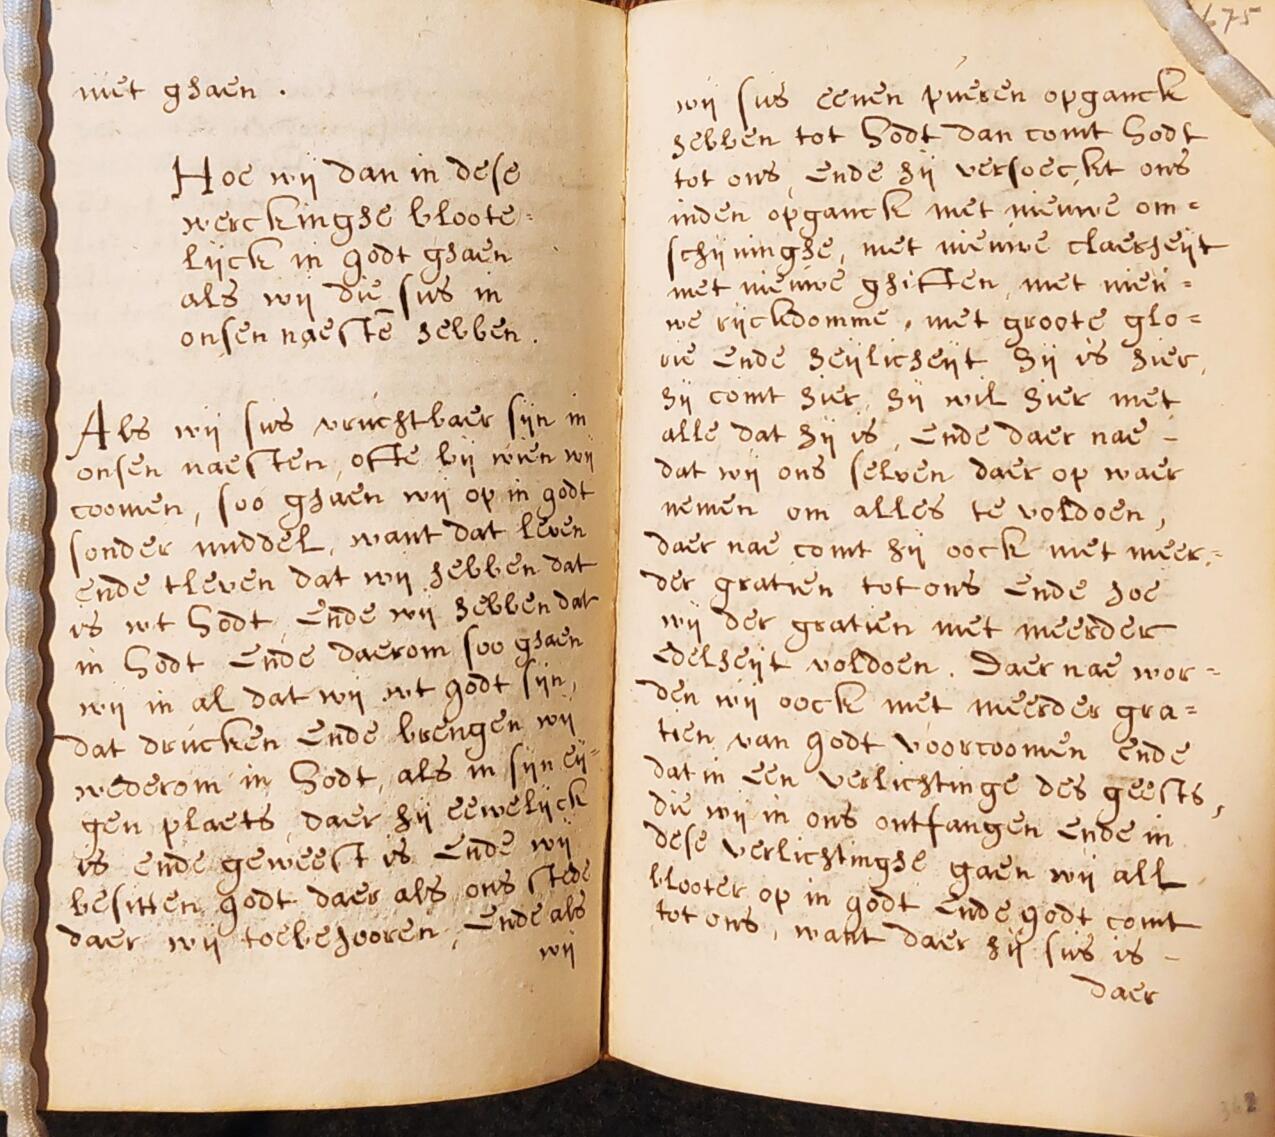 niet ghaen .
Hoe wij dan in dese
werckinghe bloote=
lijck in godt ghaen
als wij die sus in
onsen naestē hebben .
Als wij sus vruchtbaer sijn in
onsen naesten, ofte bij wien wij
coomen, soo ghaen wij op in godt
sonder middel, want dat leven
ende tleven dat wij hebben dat
is wt Godt, Ende wij hebben dat
in Godt Ende daerom soo ghaen
wij in al dat wij wt godt sijn,
dat drucken Ende brengen wij
wederom in Godt, als in sijn eij=
gen plaets, daer hij eewelijck
is ende geweest is Ende wij
besitten godt daer als ons stede
daer wij toebehooren, Ende als
wij
675
wij sus eenen pueren opganck
hebben tot Godt dan comt Godt
tot ons, Ende hij versoeckt ons
inden opganck met nieuwe om=
schijninghe, met nieuwe claerheijt
met nieuwe ghiften, met nieu=
we rijckdomme, met groote glo=
rie Ende heijlicheijt hij is hier,
hij comt hier, hij wil hier met
alle dat hij is, Ende daer nae -
dat wij ons selven daer op waer
nemen om alles te voldoen,
daer nae comt hij oock met meer=
der gratien tot ons Ende hoe
wij der gratien met meerder
Edelheijt voldoen. Daer nae wor=
den wij oock met meerder gra=
tien van godt voorcoomen Ende
dat in Een verlichtinge des geests,
die wij in ons ontfangen Ende in
dese verlichtinghe gaen wij all
blooter op in godt Ende godt comt
tot ons, want daer hij sus is -
daer
362